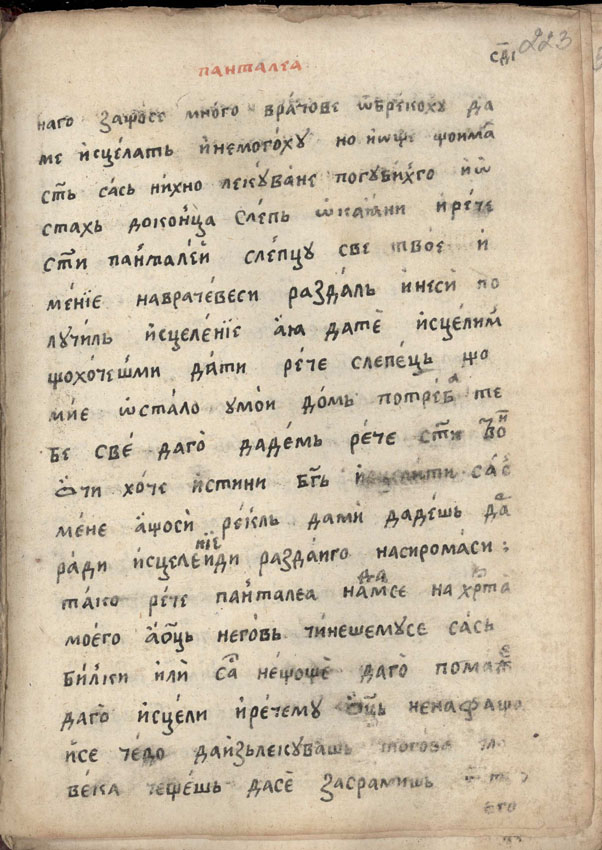 панталеа
сд҃і 223
наго защосе мно́го врачове ѡбрекоху да
ме исцелатъ и҆немого́ху но и҆още щои́ма
стъ сасъ ни́хно лекꙋва́не погꙋби́хго и҆ѡ
стахъ доконца сле́пъ ѡкаани и҆ре́че
ст҃и пан҆тале́й сле́пцꙋ све твое и҆
ме́нїе наврачевеси разда́лъ и҆неси по
лꙋ́чилъ и҆сцеле́нїе а҆ꙗ дате̏ и҆сцели́м
щохо́чешми да́ти ре́че слепе́цъ що
ми́е ѡста́ло ꙋмо́и до́мъ потре́ба те
бе све́ даго̀ даде́мъ ре́че ст҃и
ѻ҆чи хо́че и҆стини бг҃ъ и҆сцели́ти сас
ме́не а҆щоси̏ ре́къль дами̏ даде́шъ да
ра́ди исцеленїе и҆ди разда́иго насирома́си :
та́ко ре́че пан҆талеа да на́мсе на хр҃та
моего̀ а҆ѻ҆ц҃ъ него́въ чи́нешемꙋсе са́съ
би́лки или̏ са не́щоще̏ даго̀ пома́же
даго̀ и҆сцели и҆ре́чемꙋ ѻ҆ц҃ъ ненафащо
и҆се че́до даи҆зълекꙋвашъ того́ва чло
ве́ка щеще́шъ дасе̏ засрамишъ
его